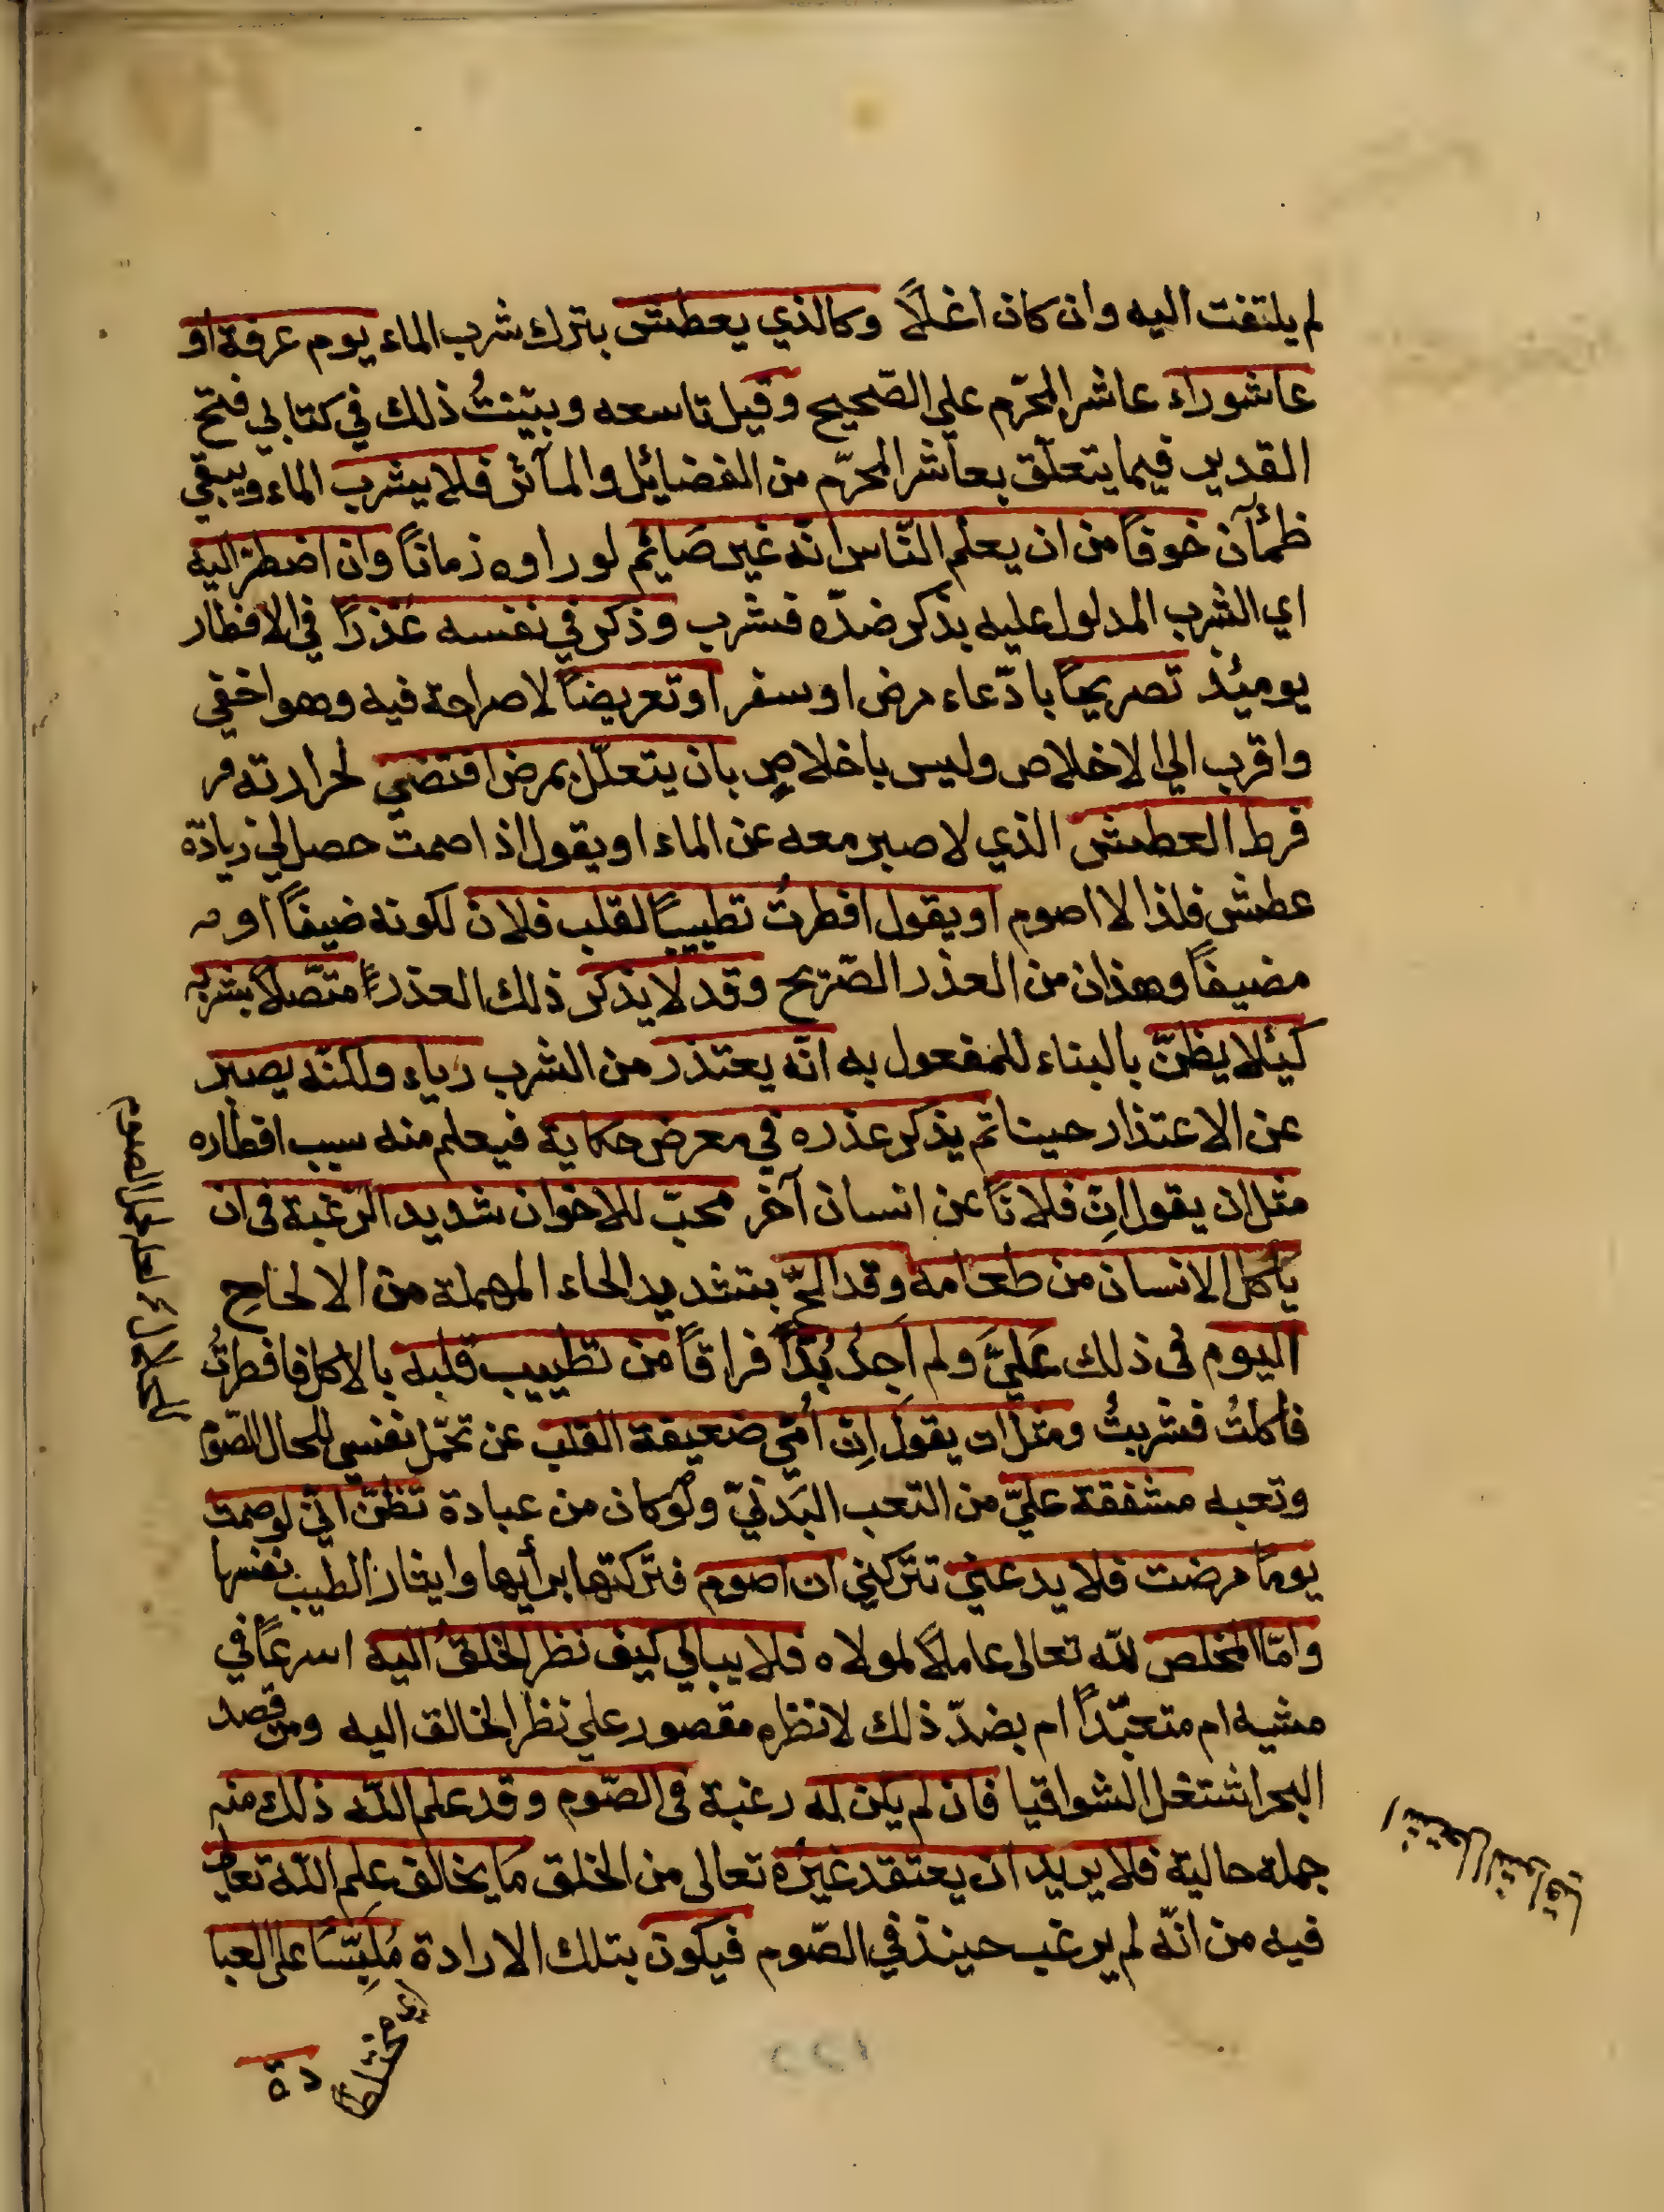 لم يلتفت اليه وان كان اغلاً وكالذي يعطش بترك شرب الماء يوم عرفة او
عاشوراء عاشر المحرّم علي الصّحيح وقيل تاسعه وبيّنتُ ذلك في كتابي فتح
القدير فيما يتعلّق بعاشر المحرّم من الفضائيل والمآثر فلا يشرب الماء ويبقي
ظمآن خوفاً من ان يعلم النّاس انّه غير صَائيم لوراوه زماناً وان اضطرّ اليه
اي الشرب المدلول عليه بذكر ضدّه فشرب وذكر في نفسه عُذرًا في الافطار
يوميُذ تصريحًا بادّعاء مرض او سفر او تعريضاً لا صراحة فيه وهو اخفي
واقرب الي الاخلاص وليس باخلاصٍ بان يتعلّل بمرض اقتضي لحرارته
فرط العطش الذي لا صبر معه عن الماء او يقول اذا صمت حصل لي زيادة
عطش فلذا لا اصوم او يقول افطرتُ تطييباً لقلب فلان لكونه ضيفاً او
مضيفاً وهذان من العذر الصّريح وقد لا يذكر ذلك العذر متصّلاً بشربه
كيئلا يظنّ بالبناء للمفعول به انّه يعتذر من الشرب رياء ولكنّه يصبر
عن الاعتذار حينا ثم يذكر عذره في معرض حكاية فيعلم منه سبب افطاره
مثل ان يقول انّ فلاناً عن انسان آخر محبّ للاخوان شديد الرّغبة فى ان
يأكل الانسان من طعامه وقد الحّ بتشديد الحاء المهملة من الالحاح
اليوم فى ذلك عَليَّ ولم اَجدُ بُدّاً فراقاً من تطييب قلبه بالاكل فافطرتُ
فأكلتُ فشربتُ ومثل ان يقول اِنّ اُمّي ضعيفة القلب عن تحمّل نفسي لحال الصّوم
وتعبه مشفقة عليّ من التعب البَدَنيّ ولوكان من عبادة تظنّ انّي لو صمت
يوماً مرضت فلا يدعني تتركني ان اصوم فتركتها برأيها وايثار الطيب نفسها
وامّا المخلص للّه تعالى عاملاً لمولاه فلا يبالي كيف نظر الخلقُ اليه اسرعًا في
مشيه ام متعبّداً ام بضدّ ذلك لا نظره مقصور علي نظر الخالق اليه ومن قصد
البحر اشتغل الشواقيا فان لم يكن له رغبة فى الصّوم وقد علم اللّه ذلك منه
جملة حالية فلا يريد ان يعتقد غيرُه تعالى من الخلق مَا يخالف علم اللّه تعالي
فيه من انّه لم يرغب حينذ في الصّوم فيكون بتلك الارادة مُلبِّسًا على العبا
دة